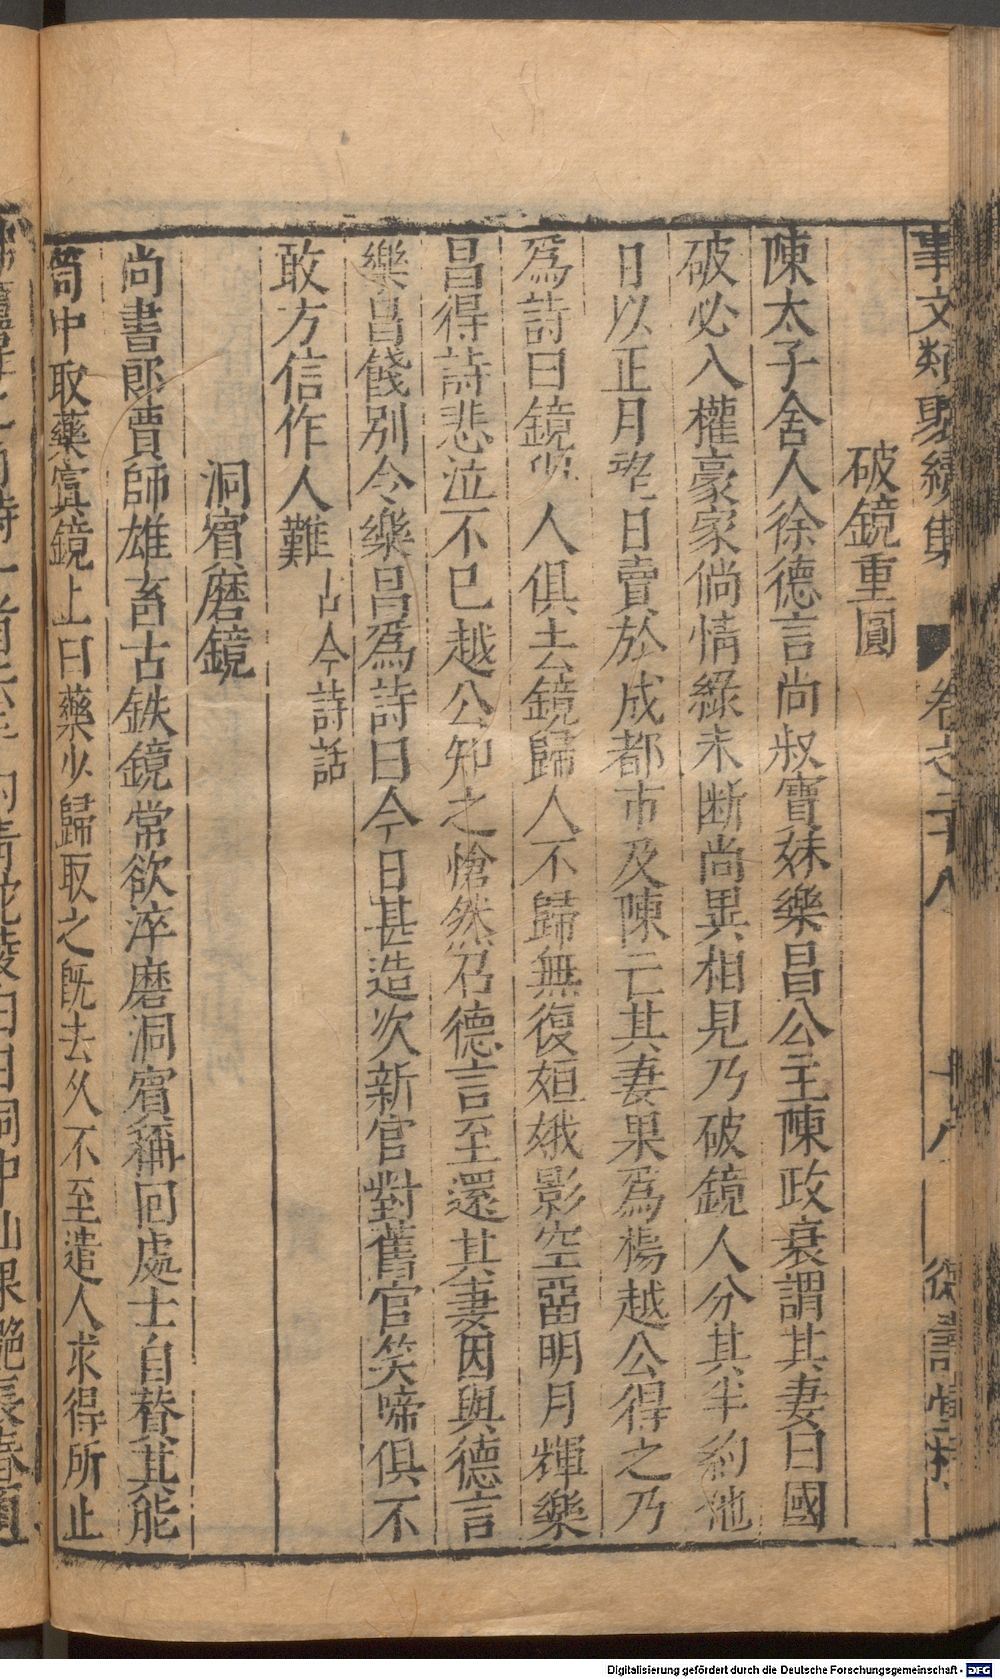 事文類聚續集 卷之二十八 十八 德壽堂梓
破鏡重圓
陳太子舍人徐德言尚叔寶妹樂昌公主陳政衰謂其妻曰國
破必入權豪家倘情緣未断尚異相見乃破鏡人分其半約他
日以正月望日賣於成都市及陳亡其妻果爲楊越公得之乃
爲詩曰鏡與人俱去鏡歸人不歸無復姮娥影空留明月輝樂
昌得詩悲泣不已越公知之愴然召德言至還其妻因與德言
樂昌餞別令樂昌爲詩曰今日甚造次新官對舊官笑啼俱不
敢方信作人難 古今詩話
洞賓磨鏡
尚書郎賈師雄畜古鉄鏡常欲淬磨洞賓稱回處士自賛其能
筒中取藥寘鏡上曰藥少歸取之既去久不至遣人求得所止
白日洞中仙果艷長春
Digitalisierung gefördert durch die Deutsche Forschungsgemeinschaft - DFG